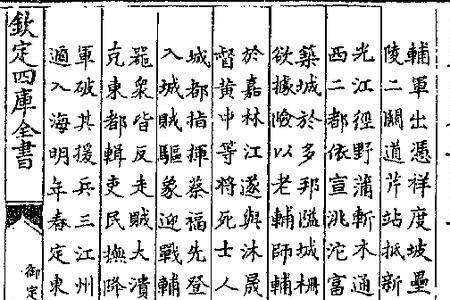 輔軍出憑祥度坡壘
陵二關道芹站抵新
光江經野蒲斬木通
西二都依宣洮沱富
築城於多邦隘城柵
欲據險以老輔師輔
於嘉林江遂與沐晟
督黄中等將死士人
城都指揮蔡福先登
入城賊驅象迎戰輔
罷衆皆反走賊大潰
克東都輯吏民撫降
軍破其援兵三江州
遁入海明年春定東
欽定四庫全書
御定